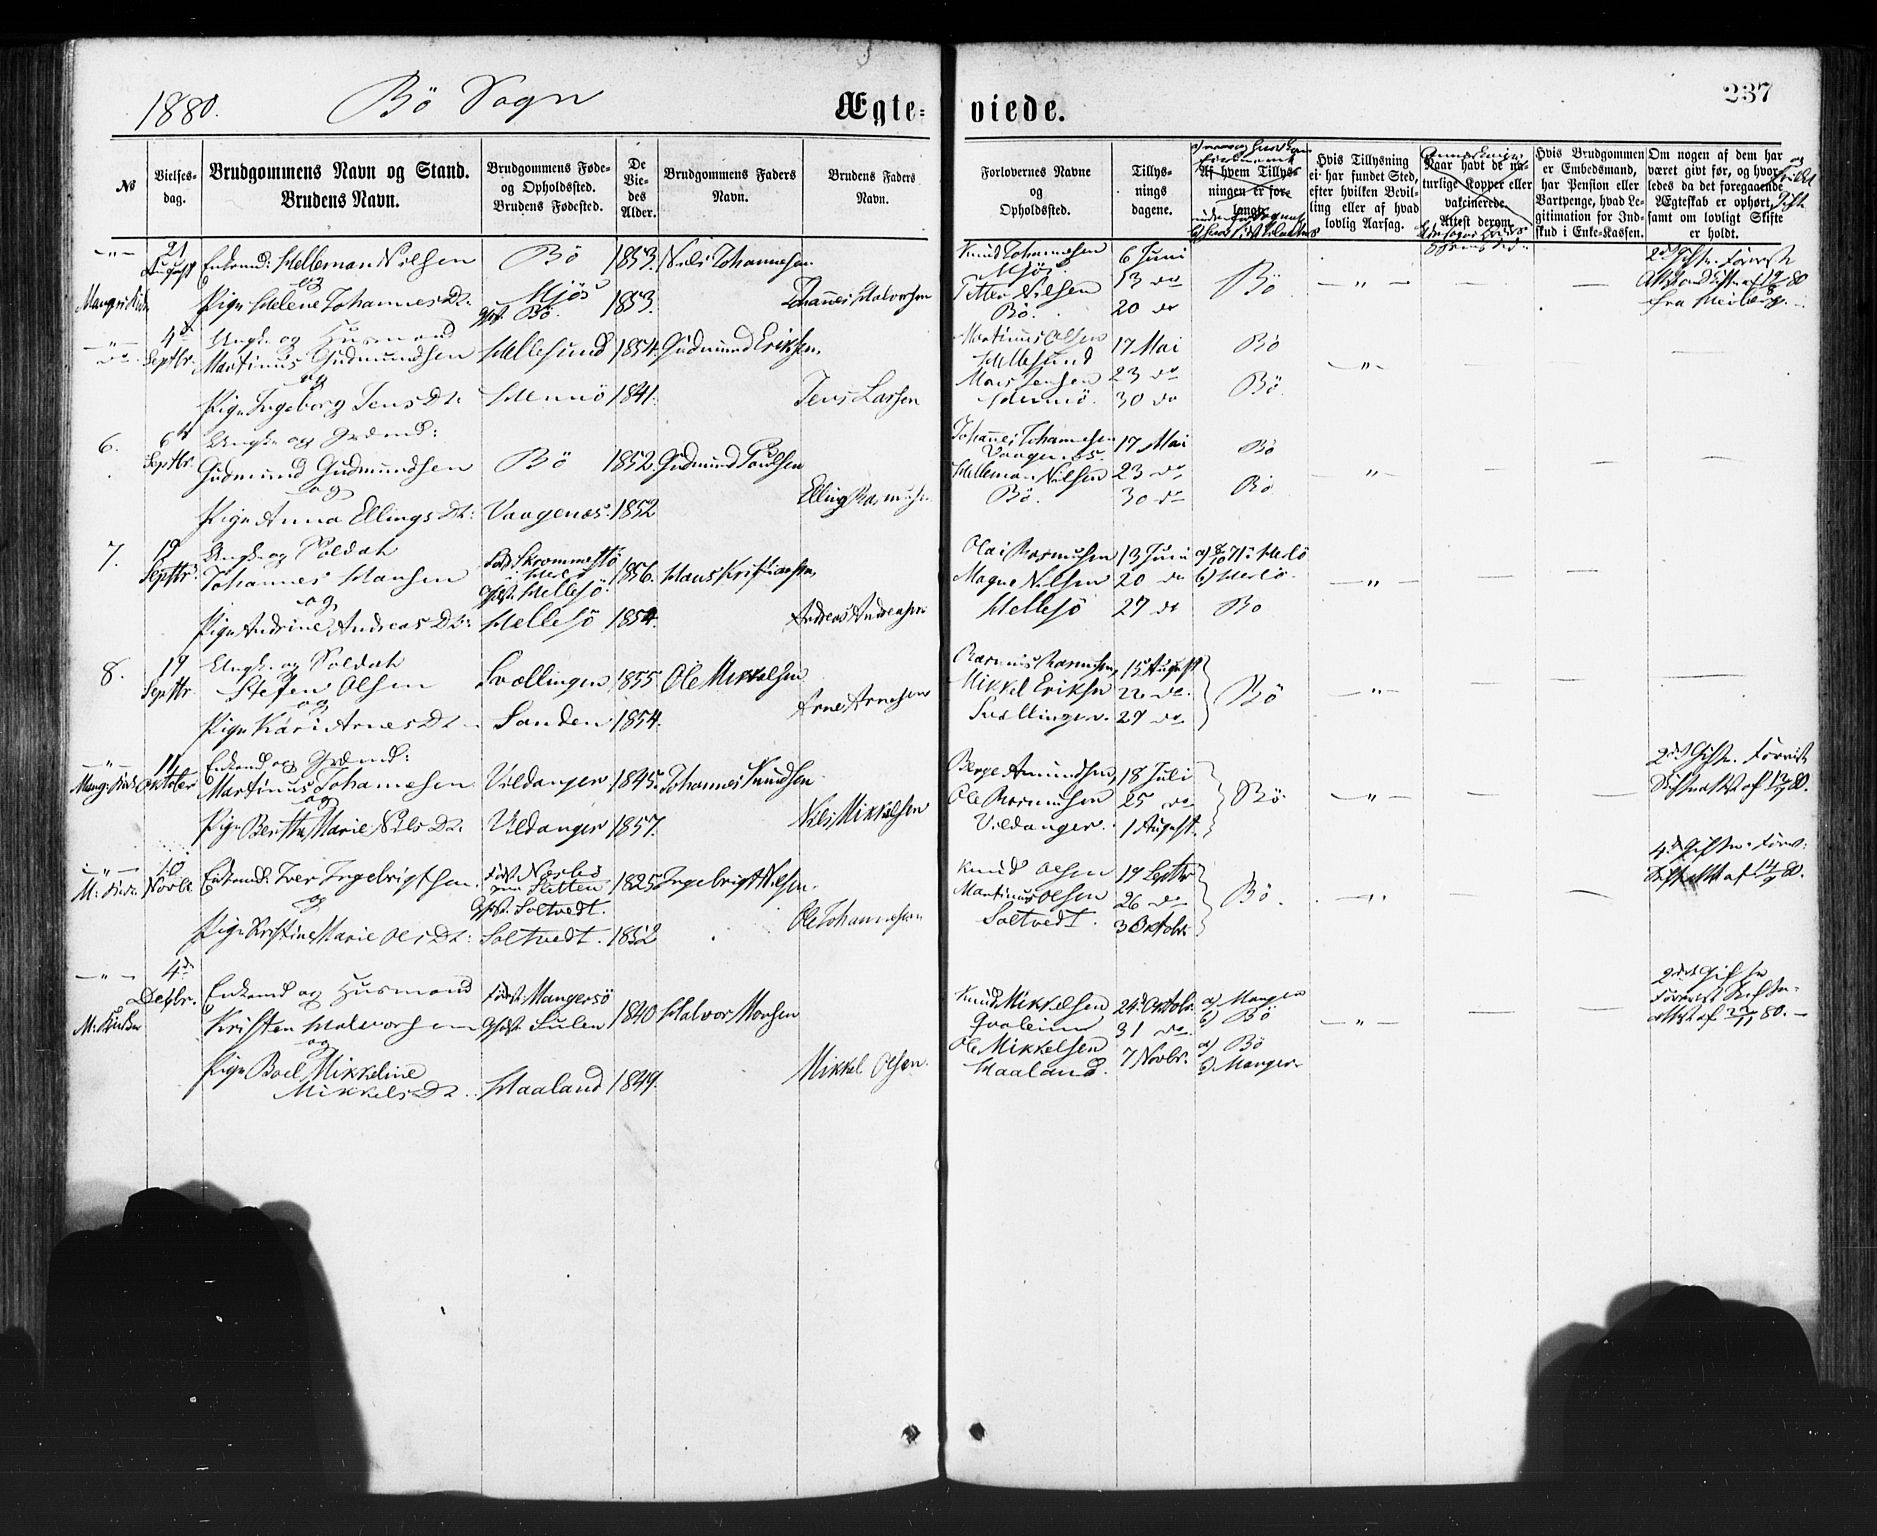 1880.
Bö Sogn
Ægte-
viede.
237
No
Vielses-
dag.
Brudgommens Navn og Stand.
Brudens Navn.
Brudgommens Føde-
og Opholdssted.
Brudens Fødested.
De
Vie-
des
Alder.
Brudgommens Faders
Navn.
Brudens Faders
Navn.
Forlovernes Navne
og
Opholdssted.
Tillys-
nings
dagene.
Af hvem Tillys-
ningen er for-
langt.
Hvis Tillysning
ei har fundet Sted,
efter hvilken Bevil-
ling eller af hvad
lovlig Aarsag.
Naar havt de na-
turlige Kopper eller
vakcinerede.
Attest derom.
Hvis Brudgommen
er Embedsmand,
har Pension eller
Vartpenge, hvad Le-
gitimation for Ind-
skud i Enke-Kassen.
Om nogen af dem har
været givt før, og hvor-
ledes da det foregaaende
Ægteskab er ophørt,
samt om lovligt Skifte
er holdt.
21 August
Enkemd: Helleman Nilsen
og
Pige Helene JohannesDt:
Bö
Mjös
Opst. Bö.
1853.
1853.
Nils Johannesen
Johannes Halvorsen
Knud Johannesen
Mjös.
Petter Nilsen
Bö.
6 Juni
13 do
20 do
Bö
4de Septbr.
Ungk. og Husmand
Martinus Gudmundsen
og
Pige Ingeborg JensDt:
Hellesund
Hernö
1854.
1841.
Gudmund Eriksen.
Jens Larsen
Martinus Olsen
Hellesund
Mons Jensen
Hernö.
17 Mai
23 do
30 do
Bö
Bö
6.
6te Septbr.
Ungk. og Grdmd:
Gudmund Gudmundsen
og
Pige Anna EllingsDt:
Bö
Vaagenæs.
1852.
1852
Gudmund Poulsen
Elling Rasmusen
Johannes Johannesen
Vaagenæs.
Helleman Nilsen
Bö.
17 Mai
23 do
30 do
Bö
Bö
7.
19 Septbr.
Ungk. og Soldat
Johannes Hansen
og
Pige Andrine AndreasDt:
Föd. Skrommestö
i Herlö
Opst. Hellesö.
Hellesö
1856.
1854.
Hans Kristiansen
Andreas Andreasen
Olai Rasmusen
Magne Nilsen
Hellesö
13 Juni
20 do
27 do
b) Herlö.
Bö
8.
19 Septbr.
Ungk. og Soldat
Stefen Olsen
og
Pige Kari ArnesDt.
Svællingen
Sanden
1855
1854.
Ole Mikkelsen
Arne Arnesen
Rasmus Rasmusen,
Mikkel Eriksen
Svællingen.
15 August
22 do.
29 do
Bö
Mang. Kirk.
11 Oktober
Enkemd og Grdmd:
Martinus Johannesen
og
Pige Berthe Marie NilsDt.
Vildanger
Vildanger
1845.
1857.
Johannes Knudsen
Nils Mikkelsen
Berge Amundsen,
Ole Rasmusen
Vildanger.
18 Juli
25 do
1 August.
Bö
2den Gifte. Forevist
Skifteattst af 13/7 80.
M: Kirk.
10 Novbr.
Enkemd: Iver Ingebrigtsen.
og
Pige Kristine Marie OlsDt:
Opst. Soltvedt.
Soltvedt.
1825
1852
Ingebrigt Nilsen.
Ole Johannesen
Knud Olsen
Martinus Olsen
Soltvedt.
19 Septbr
26 do
3 Oktobr
Bö.
4de Gifte. Forev:
Skifteattst af 14/9 80.
M: Kirken
4de Decbr.
Enkemd og Husmand
Kristen Halvorsen
og
Pige Boel Mikkeline
MikkelsDt.
Födt. Mangersö
Opst. Sulen
Haaland
1840
1849.
Halvor Monsen
Mikkel Olsen.
Knud Mikkelsen
Ole Mikkelsen
Haaland.
24de Oktobr.
31 do.
7 Novbr.
a) Manger
b) Bö
a) Bö
b) Manger
2den Gifte
Forevist Skifte-
attst af 22/11 80.